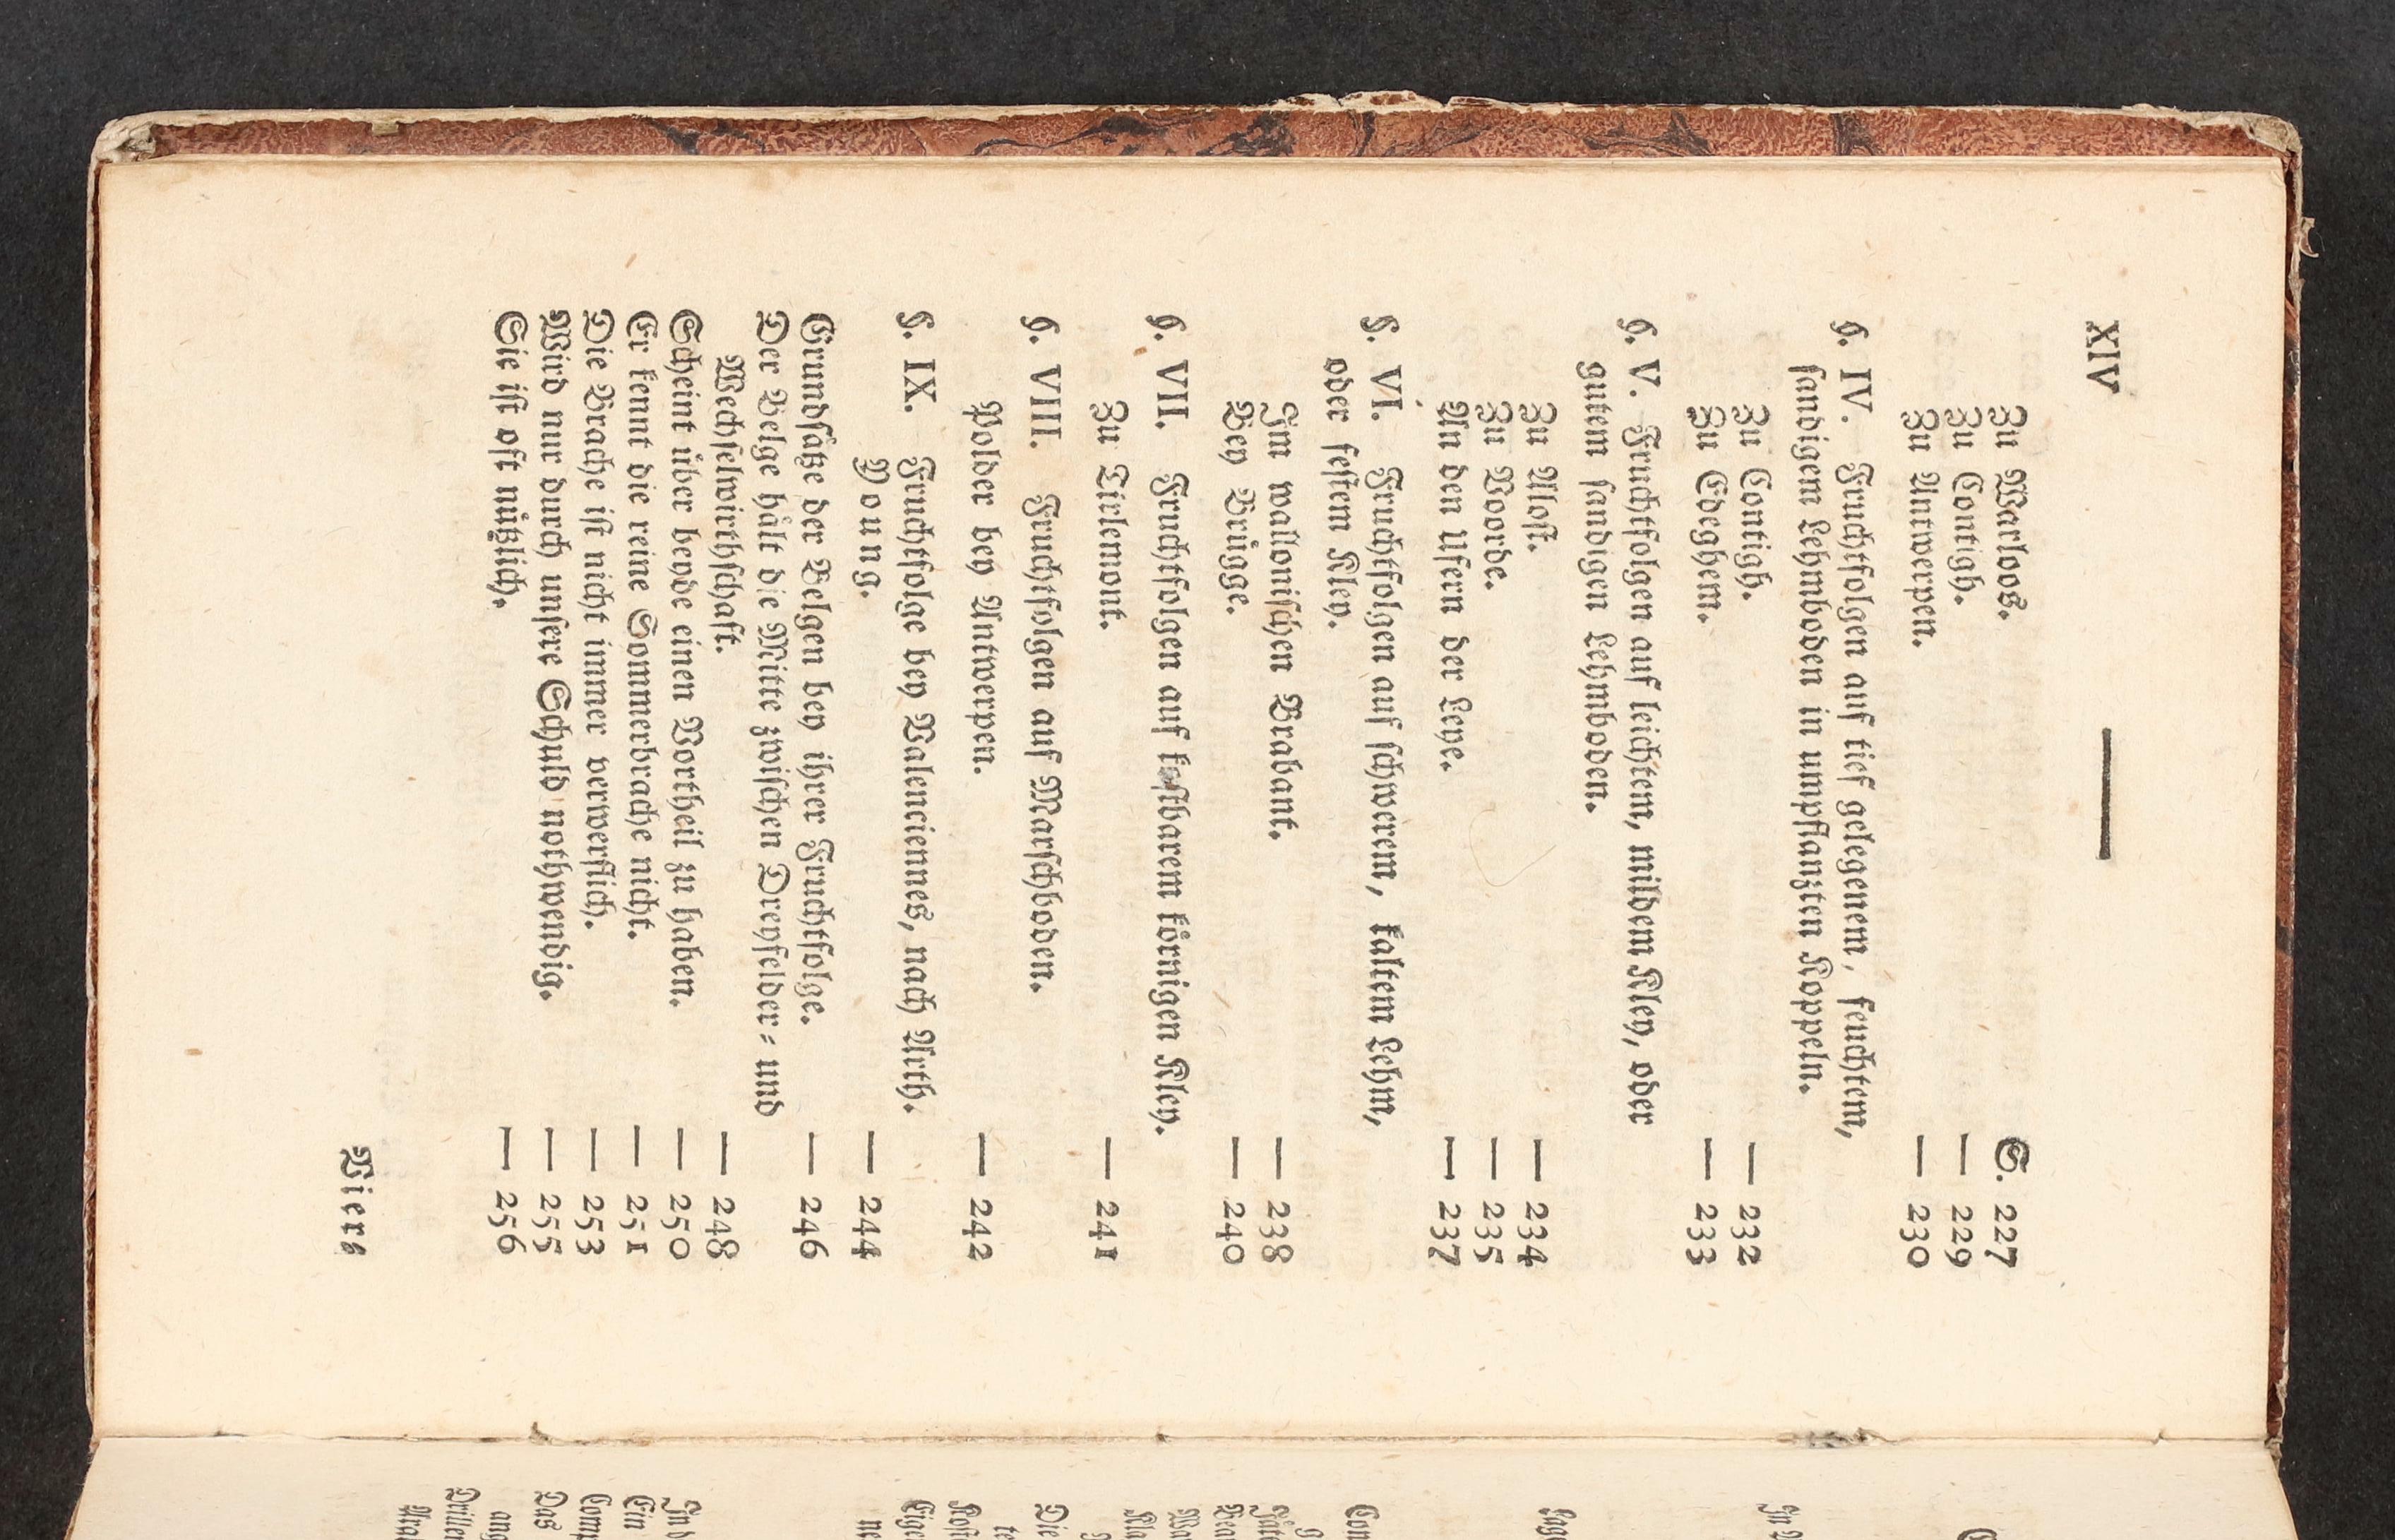 XIV
Zu Warloos. S. 227
Zu Contigh. — 229
Zu Antwerpen. — 230
§. IV. Fruchtfolgen auf tief gelegenem, feuchtem,
sandigem Lehmboden in umpflanzten Koppeln.
Zu Contigh. — 232
Zu Edeghem. — 233
§. V. Fruchtfolgen auf leichtem, mildem Kley, oder
gutem sandigen Lehmboden.
Zu Alost. — 234
Zu Voorde. — 235
An den Ufern der Leye. — 237
§. VI. Fruchtfolgen auf schwerem, kaltem Lehm,
oder festem Kley.
Im wallonischen Brabant. — 238
Bey Brügge. — 240
§. VII. Fruchtfolgen auf kostbarem körnigen Kley.
Zu Tirlemont. — 241
§. VIII. Fruchtfolgen auf Marschboden.
Polder bey Antwerpen. — 242
§. IX. Fruchtfolge bey Valenciennes, nach Arth.
Young. — 244
Grundsätze der Belgen bey ihrer Fruchtfolge. — 246
Der Belge hält die Mitte zwischen Dreyfelder- und
Wechselwirthschaft. — 248
Scheint über beyde einen Vortheil zu haben. — 250
Er kennt die reine Sommerbrache nicht. — 251
Die Brache ist nicht immer verwerflich. — 253
Wird nur durch unsere Schuld nothwendig. — 255
Sie ist oft nützlich. — 256
Viers